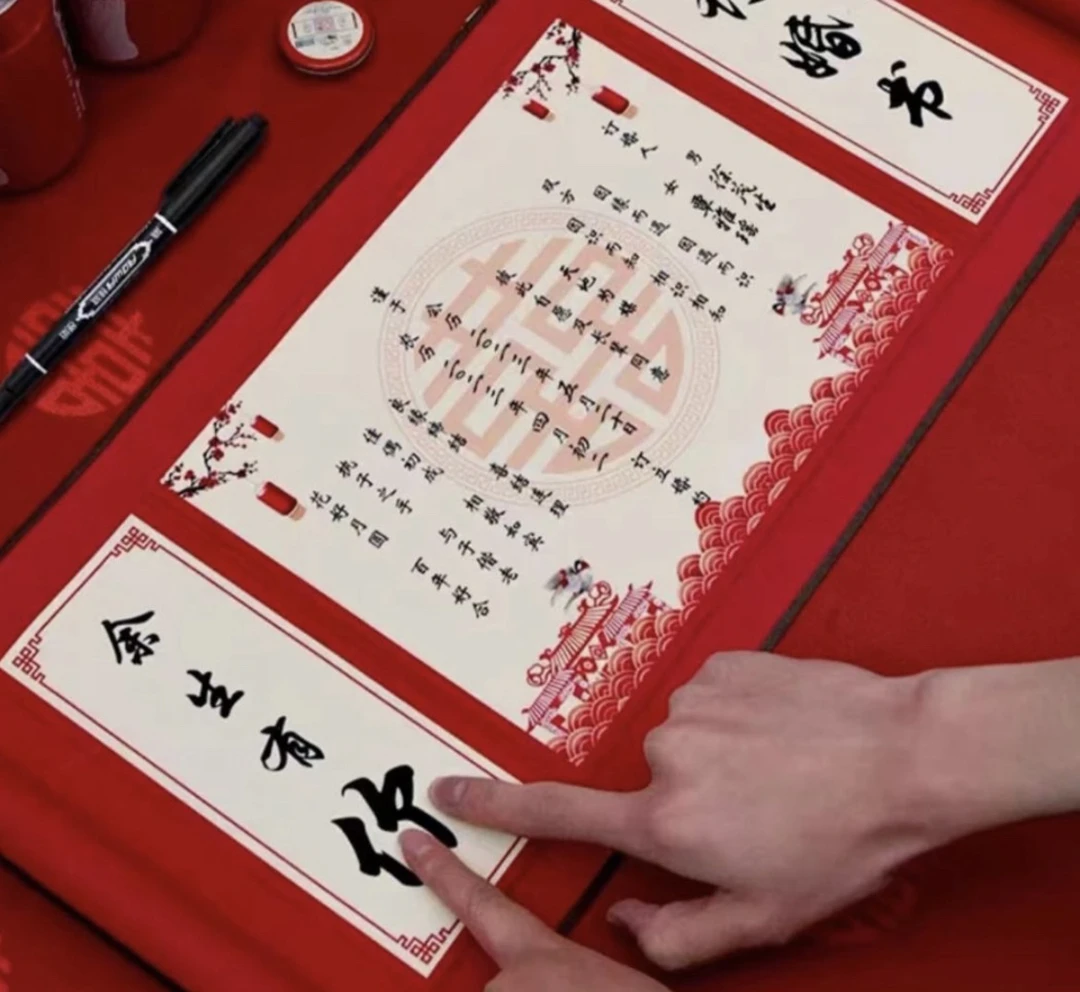 婚书
订婚人 男 徐茂生
女 覃雅瑶
双方 因缘而遇 因遇而识
因识而知 相识相知
天地为媒
执此 自愿及长辈同意
公历二〇二三年五月二十日
谨于 订立婚约
农历二〇二三年四月初二
良缘缔结 喜结连理
佳偶初成 相敬如宾
执子之手 与子偕老
花好月圆 百年好合
余生有你